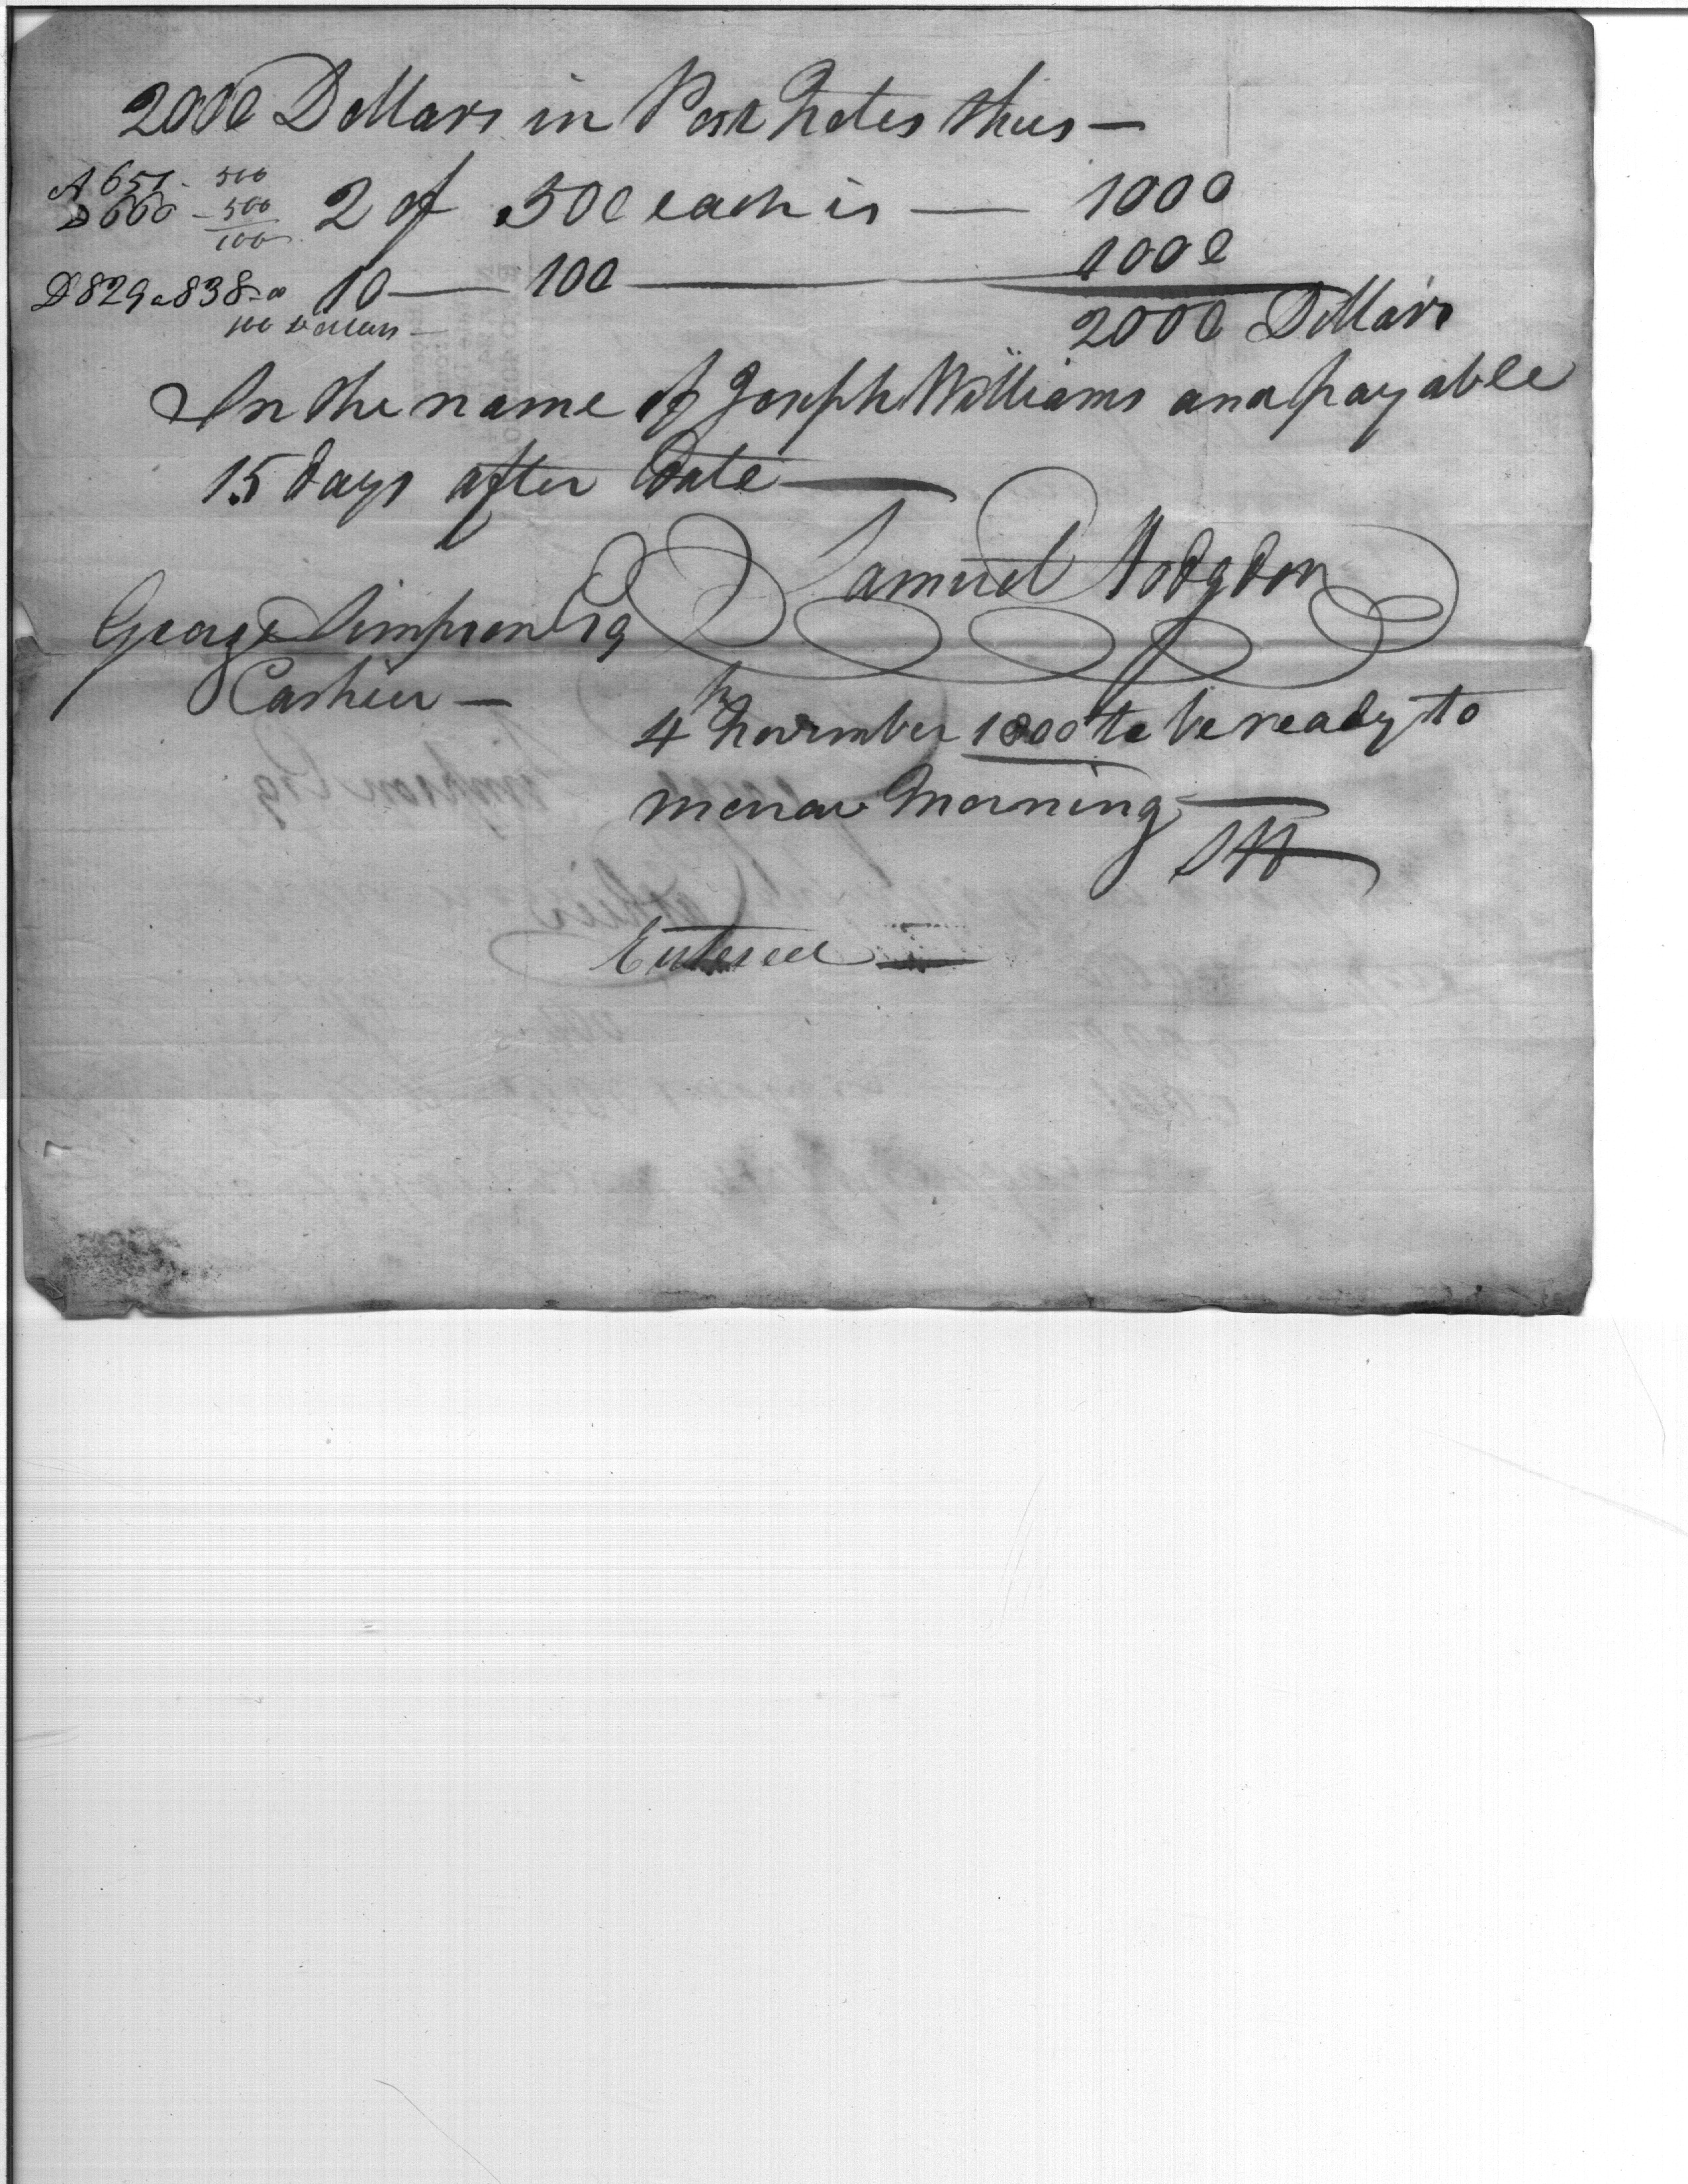 2000 Dollars in Post Notes thus —
A 657 - 500
D 660 - 500
100
2 of 500 each is — 1000
D 829 a 838 - a
100 Dollars —
10 — 100 — 1000
2000 Dollars
In the name of Joseph Williams and payable
15 days after date —
Samuel Hodgdon
George Simpson Esq
Cashier —
4th November 1800 to be ready to
morrow Morning —
SH
Entered —